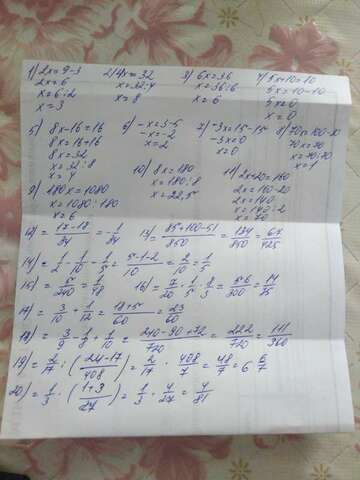 1) 2x=9-3
2x=6
x=6:2
x=3
2) 4x=32
x=32:4
x=8
3) 6x=36
x=36:6
x=6
7) 5x+10=10
5x=10-10
5x=0
x=0
5) 8x-16=16
8x=16+16
8x=32
x=32:8
x=4
6) -x=3-5
-x=-2
x=2
7) -3x=15-15
-3x=0
x=0
8) 70x=100-30
70x=70
x=70:70
x=1
9) 180x=1080
x=1080:180
x=6
10) 8x=180
x=180:8
x=22,5
11) 2x+20=160
2x=160-20
2x=140
x=140:2
x=70
12) = 17-18/34 = -1/34
13) = 85+100-51/850 = 134/850 = 67/425
14) = 1/2 - 1/10 - 1/5 = 5-1-2/10 = 2/10 = 1/5
16) = 7/20 · 1/5 · 8/3 = 56/300 = 14/75
17) = 3/10 + 1/12 = 18+5/60 = 23/60
= 240-90+72/720 = 222/720 = 111/360
19) = 2/17 : (24-17/408) = 2/17 · 408/7 = 48/7 = 6 6/7
20) = 1/3 · (1+3/27) = 1/3 · 4/27 = 4/81